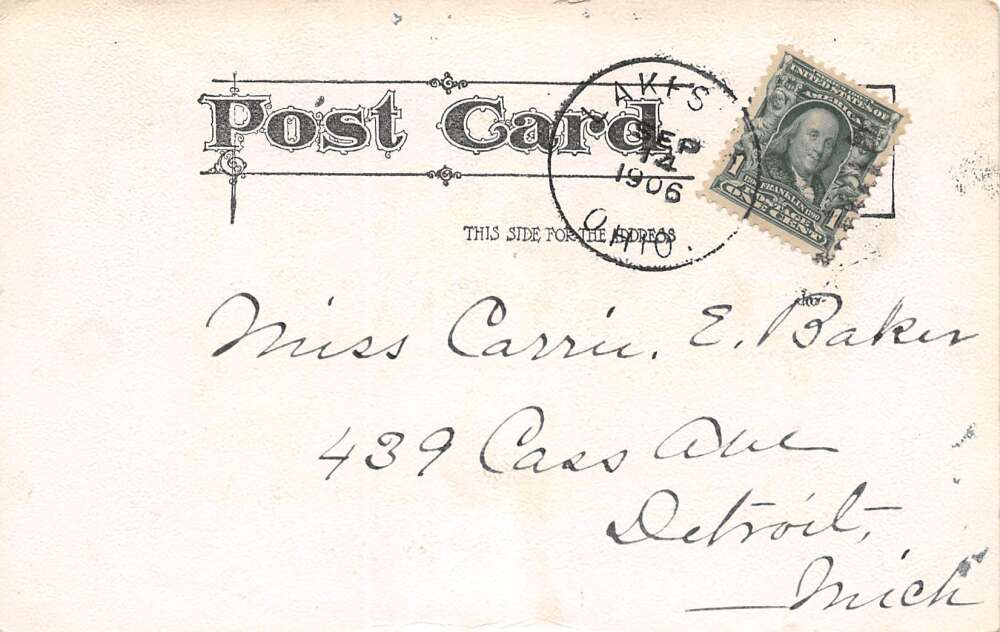 Post Card
SEP
1906
OHIO.
UNITED STATES OF
AMERICA
FRANKLIN
POSTAGE
1 ONE CENT 1
THIS SIDE FOR THE ADDRESS
Miss Carrie. E. Baker
439 Cass Ave
Detroit,
Mich